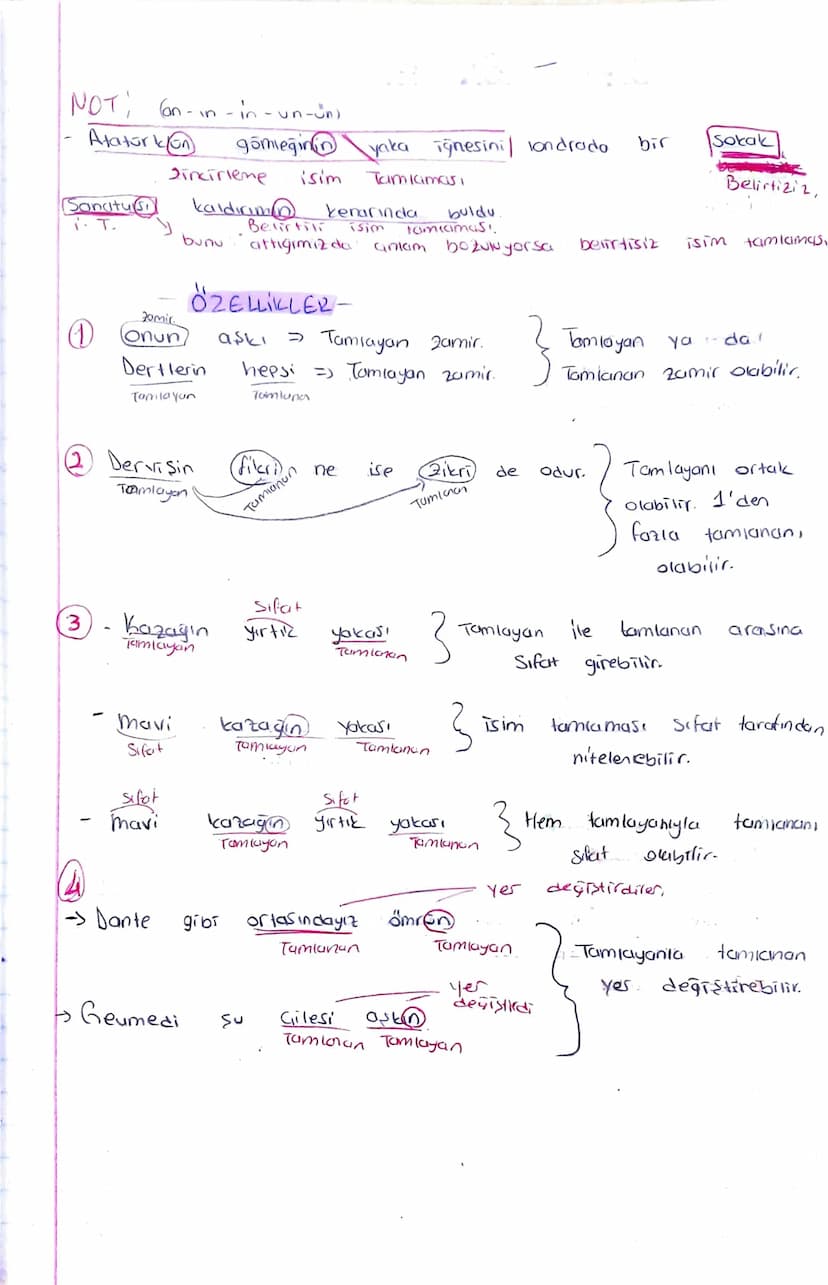 NOT; (ın-ın-in-un-ün)
- Atatürkün gömleğinin yaka iğnesini londrada bir sokak
zincirleme isim Tamlaması
Belirtisiz
Sanatçısı kaldırımın kenarında buldu.
i. T. Belirtili isim tamlaması.
bunu attığımızda anlam bozuluyorsa belirtisiz isim tamlaması
- ÖZELLİKLER -
zamir
① Onun aşkı => Tamlayan zamir. } Tamlayan ya da
Dertlerin hepsi => Tamlayan zamir. } Tamlanan zamir olabilir.
Tamlayan Tamlanan
② Dervişin fikri ne ise zikri de odur. } Tamlayanı ortak
Tamlayan Tamlanan Tamlanan olabilir. 1'den
fazla tamlananı
olabilir.
Sıfat
③ - Kazağın yırtık yakası } Tamlayan ile tamlanan arasına
Tamlayan Tamlanan Sıfat girebilir.
- Mavi kazağın yakası } isim tamlaması sıfat tarafından
Sıfat Tamlayan Tamlanan nitelenebilir.
Sıfat Sıfat
- Mavi kazağın yırtık yakası } Hem tamlayanıyla tamlananı
Tamlayan Tamlanan sıfat olabilir.
④ yer değiştirdiler.
-> Dante gibi ortasındayız ömrün
Tamlanan Tamlayan } Tamlayanla tamlanan
yer değiştirebilir.
yer değiştirdi
-> Geçmedi şu çilesi aşkın
Tamlanan Tamlayan